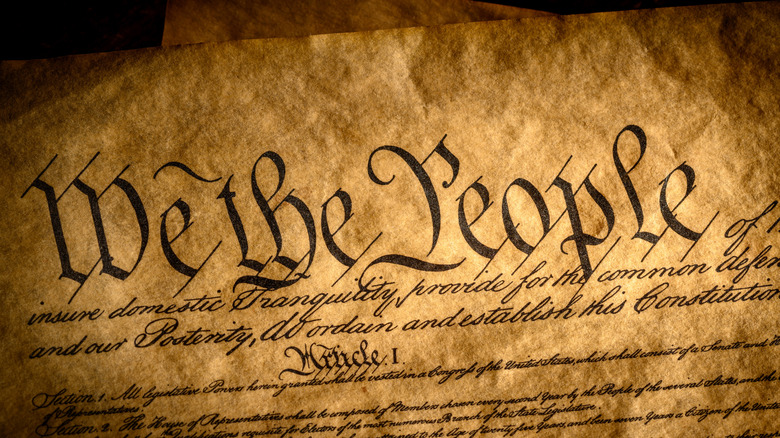 We the People of
insure domestic Tranquility, provide for the common defen
and our Posterity, do ordain and establish this Constitution
Article I.
Section 1. All legislative Powers herein granted shall be vested in a Congress of the United States, which shall consist of a Senate and
of Representatives.
Section. 2. The House of Representatives shall be composed of Members chosen every second Year by the People of the several States, and the
Qualifications requisite for Electors of the most numerous Branch of the State Legislature.
to the Age of twenty five Years, and been seven Years a Citizen of the United